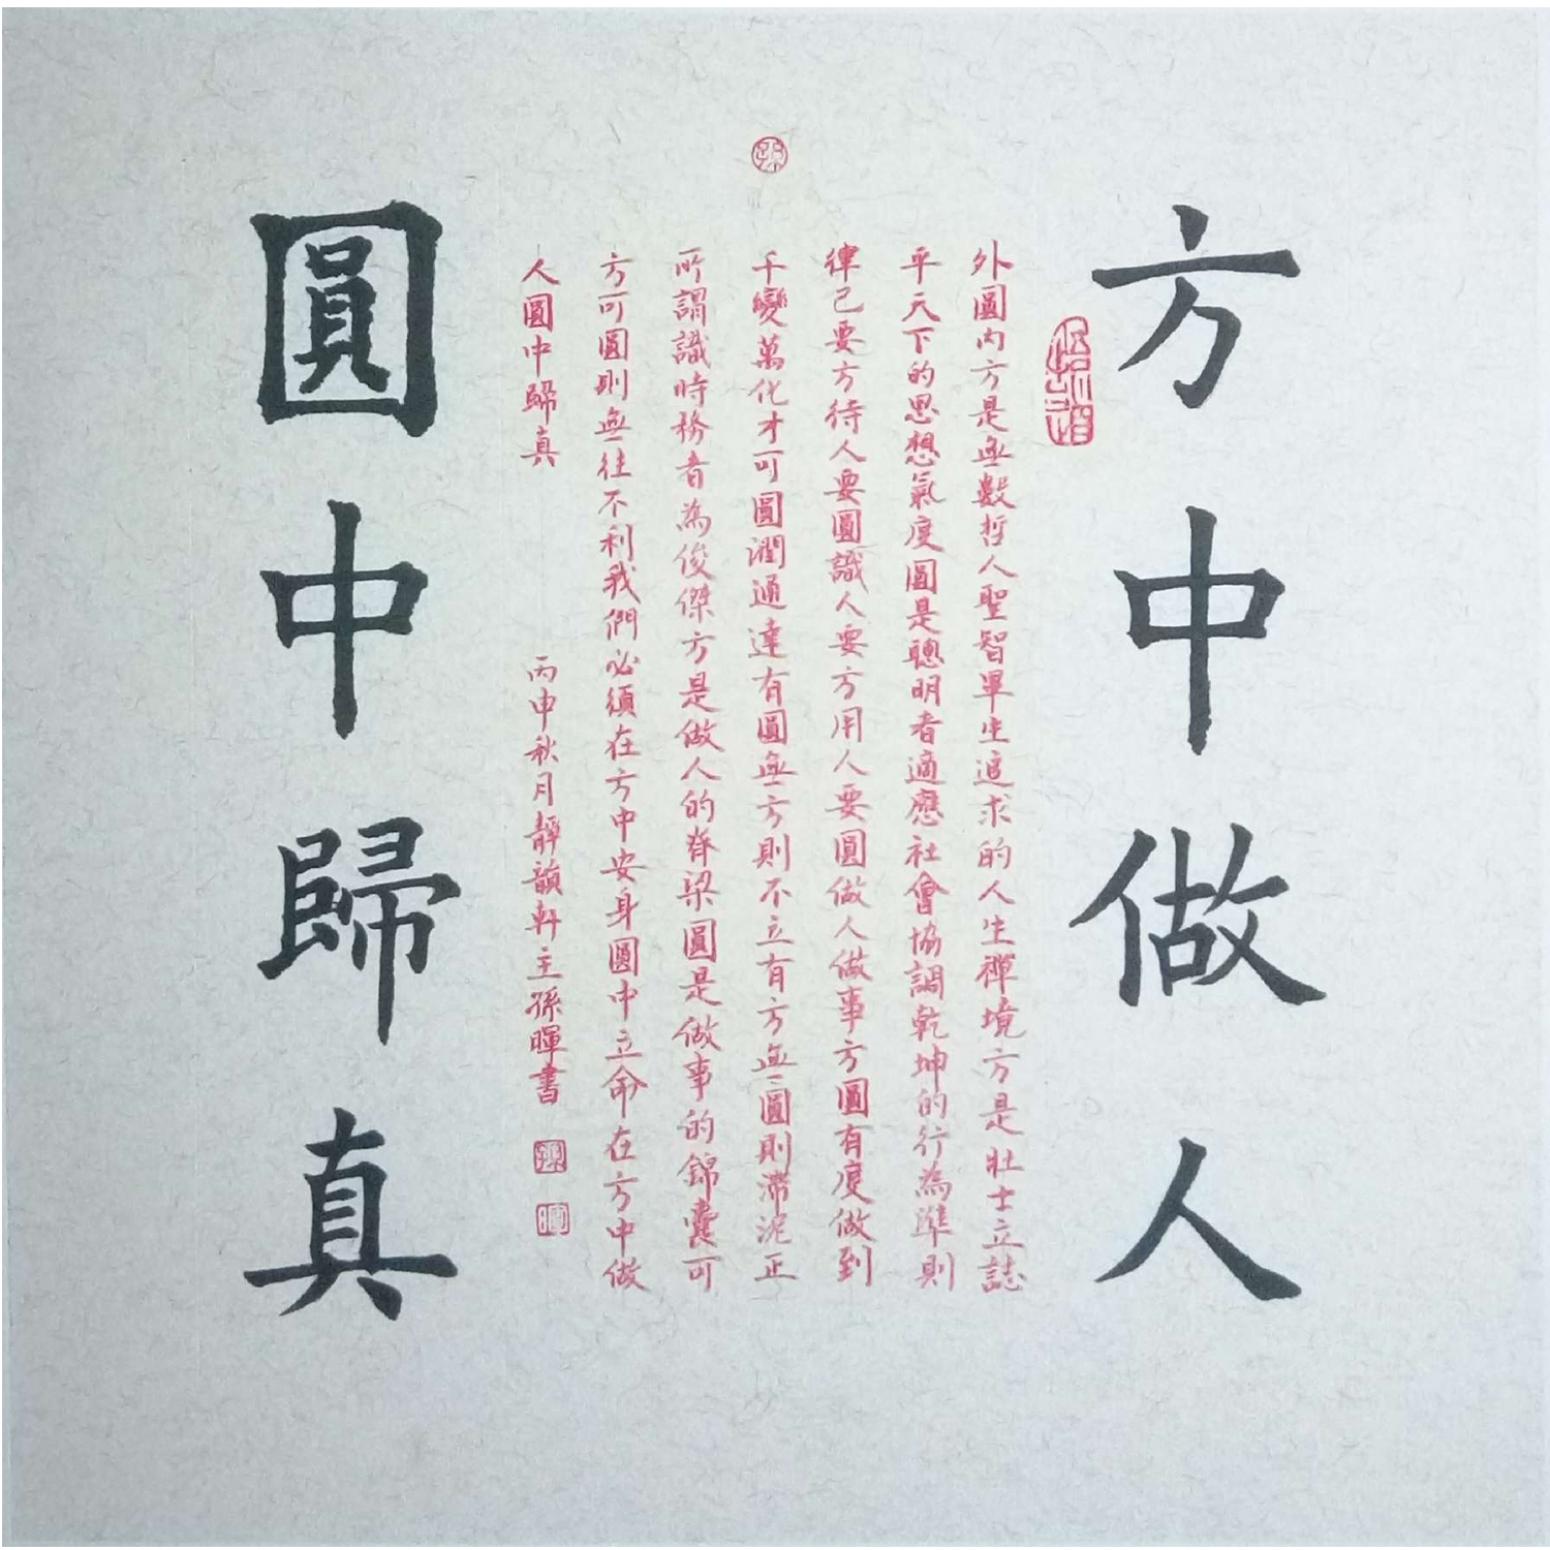 方中做人
外圓内方是無數哲人聖智畢生追求的人生禪境方是壯士立誌
平天下的思想氣度圓是聰明者適應社會協調乾坤的行為準則
律己要方待人要圓識人要方用人要圓做人做事方圓有度做到
千變萬化才可圓潤通達有圓無方則不立有方無圓則滯泥正
所謂識時務者為俊傑方是做人的脊梁圓是做事的錦囊可
方可圓則無往不利我們必須在方中安身圓中立命在方中做
人圓中歸真
丙申秋月靜韻軒主孫暉書
圓中歸真